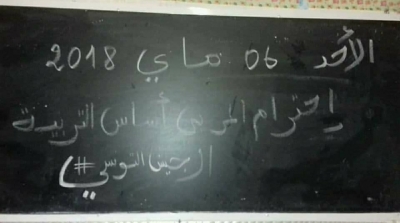 الأحد 06 ماي 2018
إحترام المربي أساس التربية
#الجيش التونسي